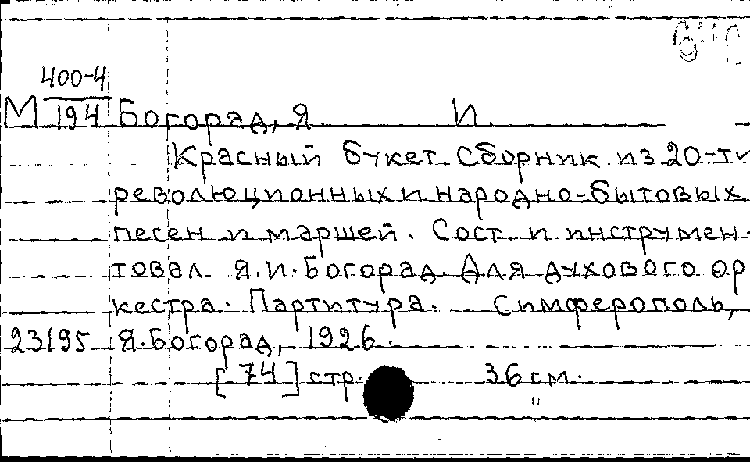 400-4
М 194 Богорад, Я И
Красный букет. Сборник из 20-ти
революционных и народно-бытовых
песен и маршей. Сост. и инструмен-
товал Я.И.Богорад. Для духового ор
кестра. Партитура. Симферополь,
23195 Я.Богорад, 1926.
[74] стр. 36 см.